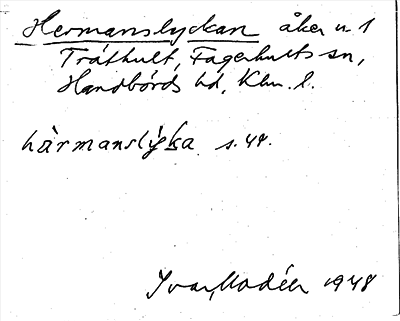 Hermanslyckan åker u. 1
Tråthult, Fagerhults sn,
Handbörds hd, Klm. l.
hä̀rmanslýka s. 48.
Ivar Modéer 1948